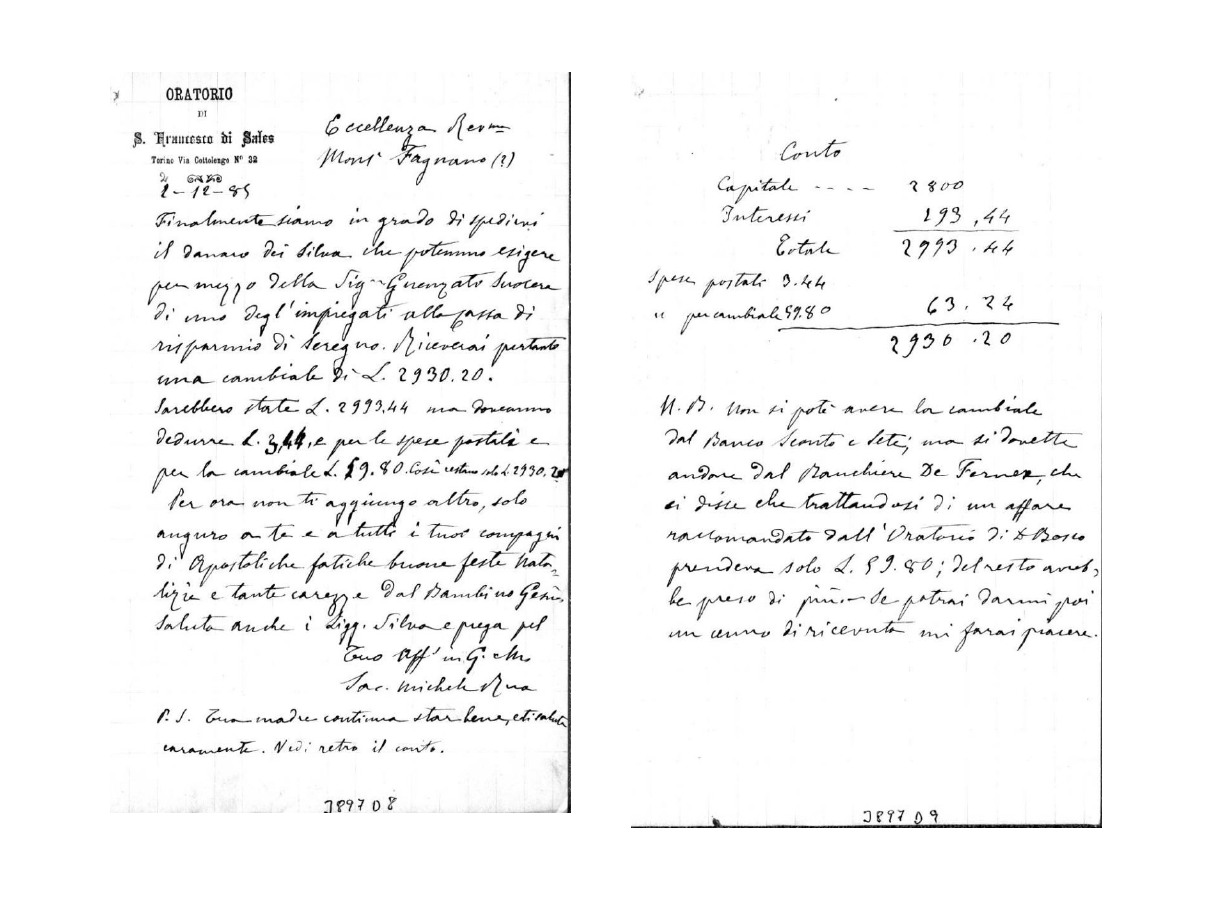 ORATORIO
DI
S. Francesco di Sales
Torino Via Cottolengo Nº 32
2-12-85
Eccellenza Rev.ma
Mons.r Fagnano (?)
Finalmente siamo in grado di spedirvi
il danaro dei Silva che potemmo esigere
per mezzo della Sig.ra Guenzato Suocera
di uno degl'impiegati alla cassa di
risparmio di Seregno. Riceverai pertanto
una cambiale di L. 2930.20.
Sarebbero state L. 2993.44 ma dovemmo
dedurre L. 3,44, e per le spese postali e
per la cambiale L. 59.80. Così restano solo L. 2930,20
Per ora non ti aggiungo altro, solo
auguro a te e a tutti i tuoi compagni
di Apostoliche fatiche buone feste Nata-
lizie e tante carezze dal Bambino Gesù.
Saluta anche i Sigg. Silva e prega pel
Tuo Aff.º in G. e M.
Sac. Michele Rua
P.S. Tua madre continua star bene, e ti saluta
caramente. Vedi retro il conto.
J897 D 8
Conto
Capitale ---- 2800
Interessi 193,44
Totale 2993.44
Spese postali 3.44
" per cambiale 59.80 63.24
2930.20
N.B. Non si potè avere la cambiale
dal Banco Sconto e Sete; ma si dovette
andare dal Banchiere De Fernex, che
ci disse che trattandosi di un affare
raccomandato dall'Oratorio di D Bosco
prendeva solo L. 59.80; del resto avreb-
be preso di più. - Se potrai darmi poi
un cenno di ricevuta mi farai piacere.
J897 D 9